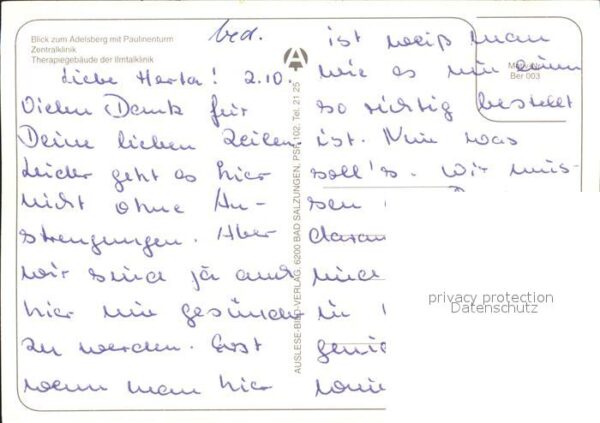 Blick zum Adelsberg mit Paulinenturm
Zentralklinik
Therapiegebäude der Ilmtalklinik
bed.
Liebe Herta! 2.10.
Vielen Dank für
Deine lieben Zeilen.
Leider geht es hier
nicht ohne An-
strengungen. Aber
wir sind ja auch
hier um gesünder
zu werden. Erst
wenn man hier
AUSLESE-BILD-VERLAG, 6200 BAD SALZUNGEN, PSF 102, Tel. 21 25
Ber 003
ist weiß man
wie es um einen
so richtig bestellt
ist. Nun was
soll's. Wir müs-
sen
daran
und
in
privacy protection
Datenschutz